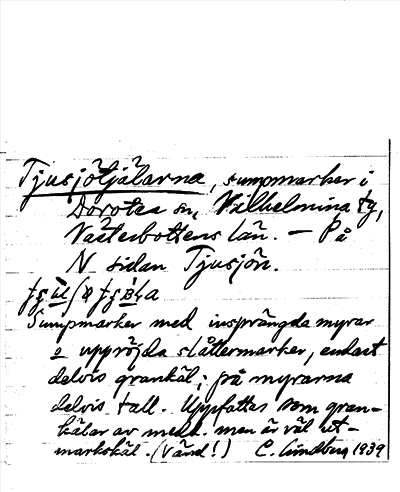 Tjusjötjälarna, sumpmarker i
Dorotea sn, Vilhelmina tg,
Västerbottens län. — På
N sidan Tjusjön.
Sumpmarker med insprängda myrar
o uppröjda slåttermarker, endast
delvis grankäl; på myrarna
delvis tall. Uppfattas som gran-
kälar av medd. men är väl ut-
markskäl. (Vänd!) C. Lundberg 1939